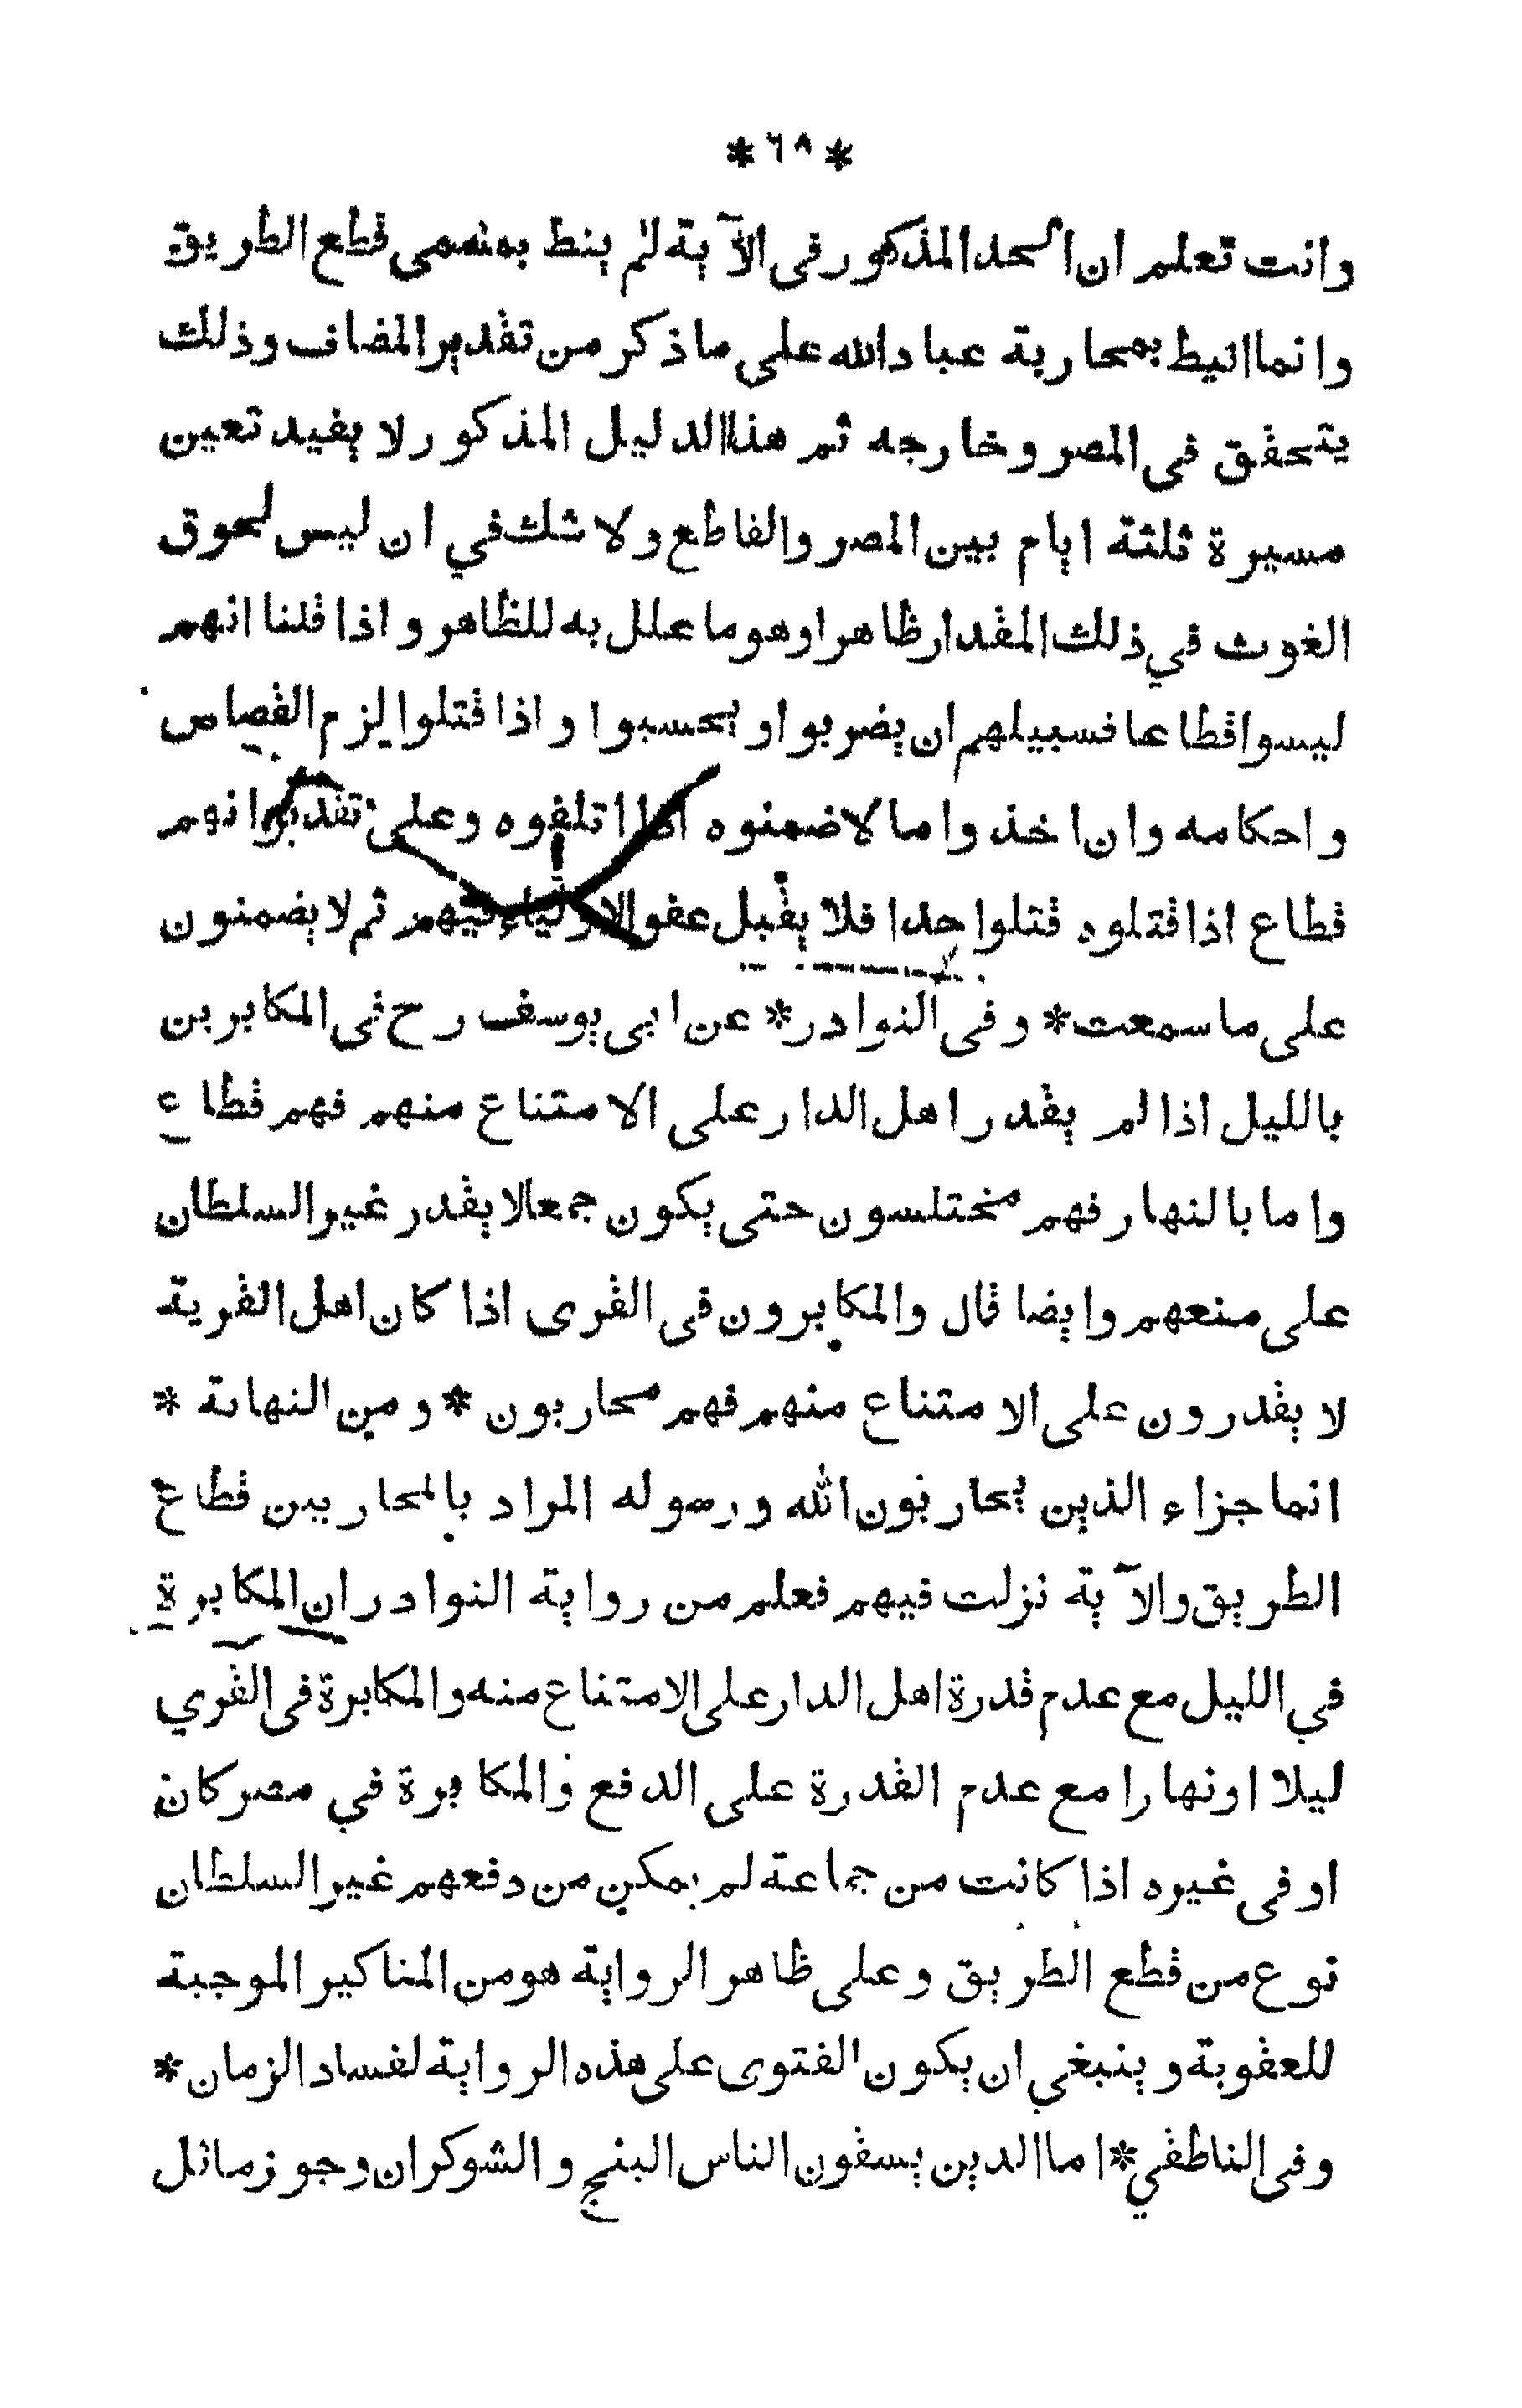 * ٦٨ *
وانت تعلم ان الحد المذكور فى الآية لم ينط بمسمى قطع الطريق
وانما انيط بمحاربة عباد الله على ما ذكر من تقدير المضاف وذلك
يتحقق فى المصر وخارجه ثم هذا الدليل المذكور لا يفيد تعين
مسيرة ثلثة ايام بين المصر والقاطع ولا شك في ان ليس لحوق
الغوث في ذلك المقدار ظاهرا وهو ما علل به للظاهر واذا قلنا انهم
ليسوا قطاعا فسبيلهم ان يضربوا ويحسبوا واذا قتلوا لزم القصاص
واحكامه وان اخذ واما لا ضمنوه اذا اتلفوه وعلى تقدير انهم
قطاع اذا قتلوه قتلوا حدا فلا يقبل عفو الاولياء فيهم ثم لا يضمنون
على ما سمعت * وفى النوادر * عن ابى يوسف رح فى المكابرين
بالليل اذا لم يقدر اهل الدار على الامتناع منهم فهم قطاع
واما بالنهار فهم مختلسون حتى يكون جمعا لا يقدر غير السلطان
على منعهم وايضا قال والمكابرون فى القرى اذا كان اهل القرية
لا يقدرون على الامتناع منهم فهم محاربون * ومن النهاية *
انما جزاء الذين يحاربون الله ورسوله المراد بالمحاربين قطاع
الطريق والآية نزلت فيهم فعلم من رواية النوادر ان المكابرة
في الليل مع عدم قدرة اهل الدار على الامتناع منه والمكابرة فى القري
ليلا اونهارا مع عدم القدرة على الدفع والمكابرة في مصر كان
او فى غيره اذا كانت من جماعة لم يمكن من دفعهم غير السلطان
نوع من قطع الطريق وعلى ظاهر الرواية هو من المناكير الموجبة
للعقوبة وينبغي ان يكون الفتوى على هذه الرواية لفساد الزمان *
وفى الناطقي * اما الذين يسقون الناس البنج والشوكران وجوز ماثل